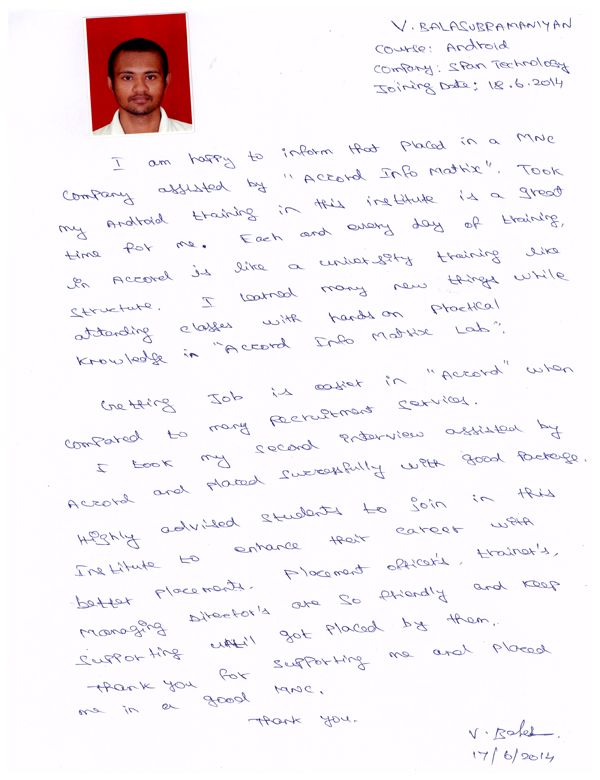 V. BALASUBRAMANIYAN
Course: Android
Company: Span Technology
Joining Date: 18.6.2014
I am happy to inform that placed in a MNC
company assisted by "Accord Info Matrix". Took
my Android training in this institute is a great
time for me. Each and every day of training,
in Accord is like a university training like
structure. I learned many new things while
attending classes with hands on practical
knowledge in "Accord Info Matrix Lab".
Getting Job is easier in "Accord" when
compared to many recruitment services.
I took my second interview assisted by
Accord and placed successfully with good package.
Highly advised students to join in this
Institute to enhance their career with
better placements. Placement officer's, trainer's,
Managing Director's are so friendly and keep
supporting until got placed by them.
Thank you for supporting me and placed
me in a good MNC.
Thank you.
V. Bala
17/6/2014